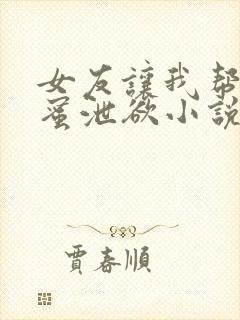 女友讓我幫
蜜泄欲小說
賈春順